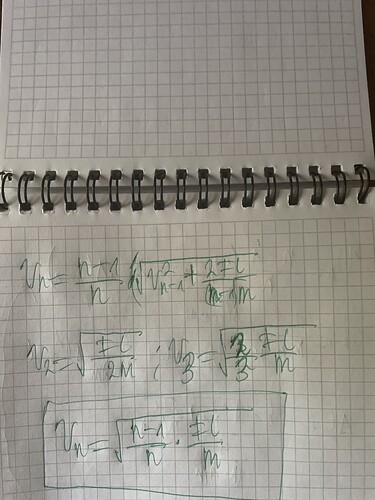 Vn = n-1/n (√(V²n-1 + 2Fl/(n-1)m
V2 = √(Fl/2M) ; V3 = √(2/3 Fl/m)
Vn = √(n-1/n · Fl/m)